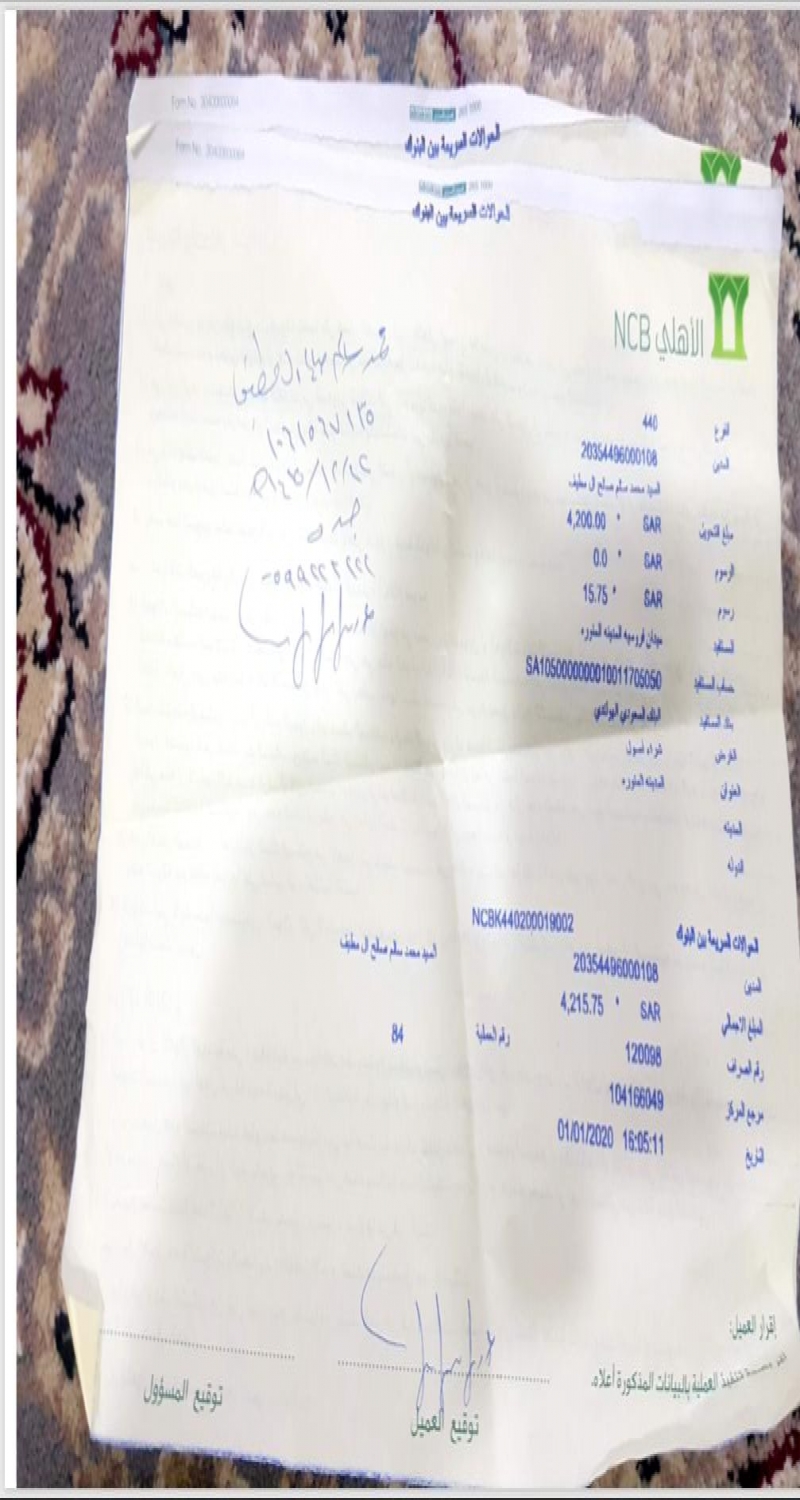 Form No. 3040000004
الحوالات السريعة بين البنوك
الحوالات السريعة بين البنوك
NCB الأهلي
الفرع 440
المدين 20354496000108
السيد محمد سالم صالح ال مطيف
مبلغ التحويل SAR * 4,200.00
الرسوم SAR * 0.0
رسوم SAR * 15.75
المستفيد ميدان فروسيه المدينه المنوره
حساب المستفيد SA1050000000010011705050
بنك المستفيد البنك السعودي الهولندي
الغرض شراء اصول
العنوان المدينه المنوره
المدينه
الدوله
محمد سالم صالح
١٠٦١٥٦٧١٣٥
جده
الحوالات السريعة بين البنوك NCBK440200019002
المدين 20354496000108 السيد محمد سالم صالح ال مطيف
المبلغ الاجمالي SAR * 4,215.75
رقم الصراف 120098 رقم العملية 84
مرجع المركز 104166049
التاريخ 01/01/2020 16:05:11
إقرار العميل:
تنفيذ العملية بالبيانات المذكورة أعلاه.
توقيع العميل
توقيع المسؤول